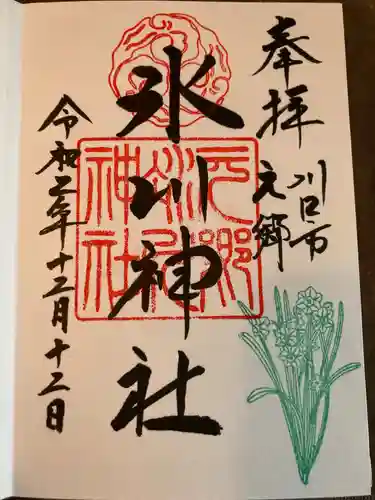 奉拝
川口市
元郷
氷川神社
元郷氷川神社
令和二年十二月十二日